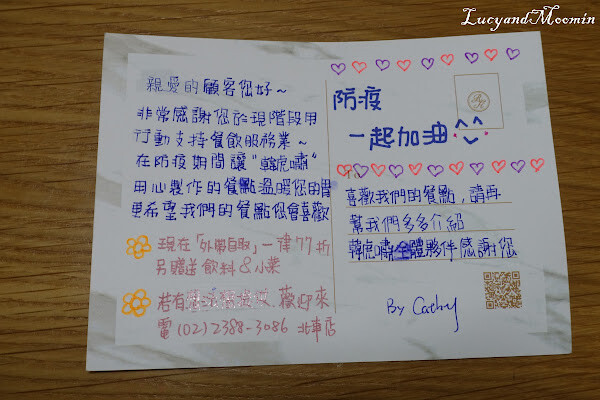 LucyandMoomin
親愛的顧客您好~
非常感謝您於現階段用
行動支持餐飲服務業~
在防疫期間讓"韓虎嘯"
用心製作的餐點溫暖您的胃
更希望我們的餐點您會喜歡
現在「外帶自取」一律77折
另贈送飲料&小菜
若有 歡迎來
電(02)2388-3086 北車店
防疫
一起加油^^
To
喜歡我們的餐點,請再
幫我們多多介紹
韓虎嘯全體夥伴感謝您
By Cathy